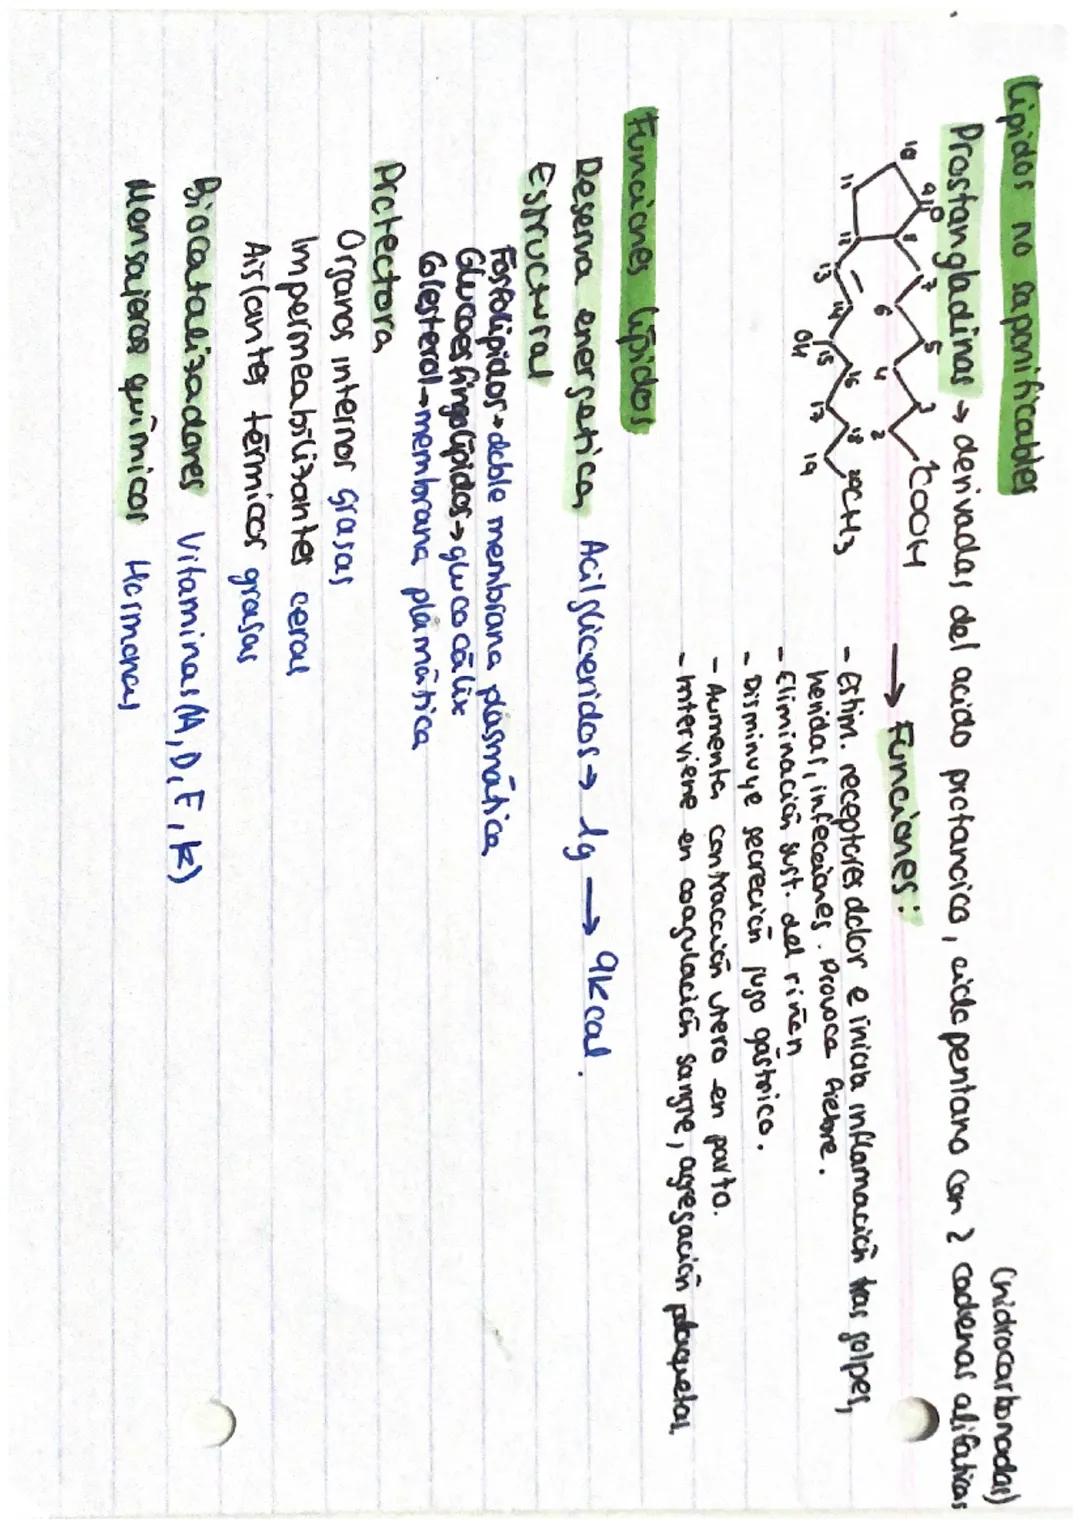 Lípidos no saponificables
(hidrocarbonadas)
Prostangladinas → derivadas del acido proctancico, ciclo pentano con 2 cadenas alifaticas
9 O 8 7 6 5 4 3 2 1 COOH
10 11 12 13 14 15 16 17 18 19 20 CH3
OH
→ Funciones:
- Estim. receptores dolor e inicia inflamación tras golpes,
heridas, infecciones. Provoca fiebre.
- Eliminación sust. del riñón
- Disminuye secreción jugo gástrico.
- Aumenta contracción utero en parto.
- Interviene en coagulación sangre, agregación plaquetas.
Funciones lípidos
Reserva energetica Acilgliceridos → 1g → 9kcal.
Estructural
Fosfolipidos → doble membrana plasmática
Glucoesfingolípidos → glucocálix
Colesterol → membrana plamática
Protectora
Organos internos grasas
Impermeabilizantes ceras
Aislantes térmicos grasas
Biocatalizadores Vitaminas (A, D, E, K)
Mensajeros químicos Hormonas